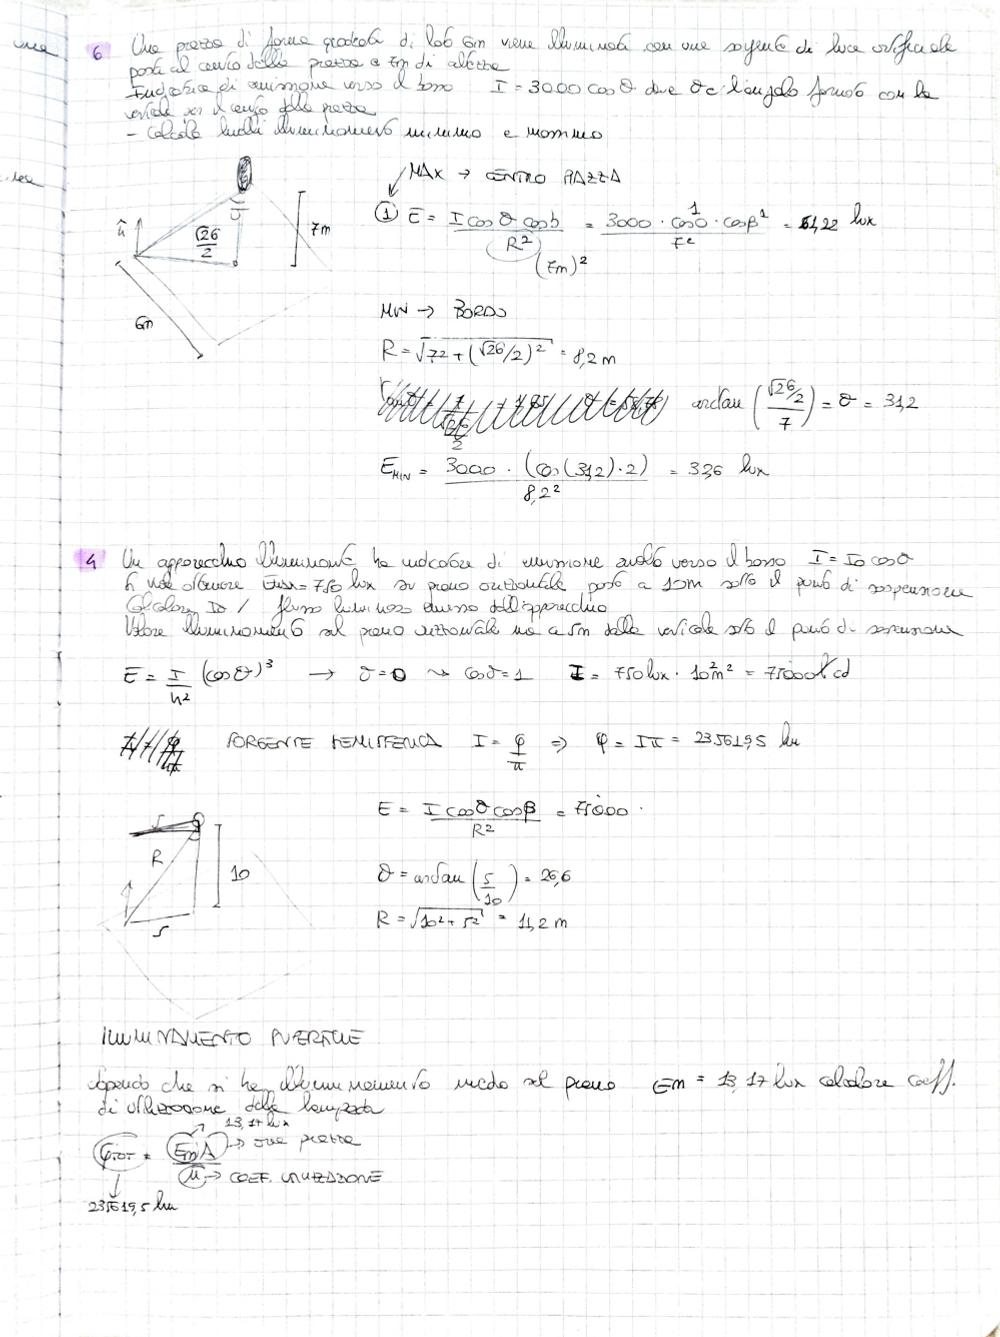 6 Una piazza di forma quadrata di lato 6m viene illuminata con una sorgente di luce artificiale
posta al centro della piazza a 7m di altezza
Indicatrice di emissione verso il basso I = 3000 cos θ dove θ è l'angolo formato con la
verticale per il centro della piazza
- Calcola livelli illuminamento minimo e massimo
MAX → CENTRO PIAZZA
① E = I cos θ cos b / R² = 3000 · cos 0 · cos β / 7² = 61,22 lux
1 1
(7m)²
n̂
√26/2
7m
6m
MIN → BORDO
R = √7² + (√26/2)² = 8,2 m
arctan (√26/2 / 7) = θ = 31,2
E MIN = 3000 · (cos(31,2)·2) / 8,2² = 32,6 lux
4 Un apparecchio illuminante ha indicatore di emissione rivolto verso il basso I = I0 cos θ
Si vuole ottenere = 750 lux su piano orizzontale posto a 10m sotto il punto di sospensione
Calcolare I0 / flusso luminoso emesso dall'apparecchio
Valore illuminamento sul piano orizzontale ma a 5m dalla verticale sotto il punto di sospensione
E = I / h² (cos θ)³ → θ = 0 ⤳ cos θ = 1 I = 750 lux · 10² m² = 75000 cd
SORGENTE EMISFERICA I = φ / π ⇒ φ = Iπ = 235619,5 lm
E = I cos θ cos β / R² = 75000 ·
5
R
10
5
θ = arctan (5 / 10) = 26,6
R = √10² + 5² = 11,2 m
ILLUMINAMENTO PUERFICIE
Sapendo che si ha illuminamento medio sul piano Em = 13,17 lux calcolare coeff.
di utilizzazione della lampada
13,17 lux
φTOT = Em A / μ → area piazza
→ COEF. UTILIZZAZIONE
235619,5 lm